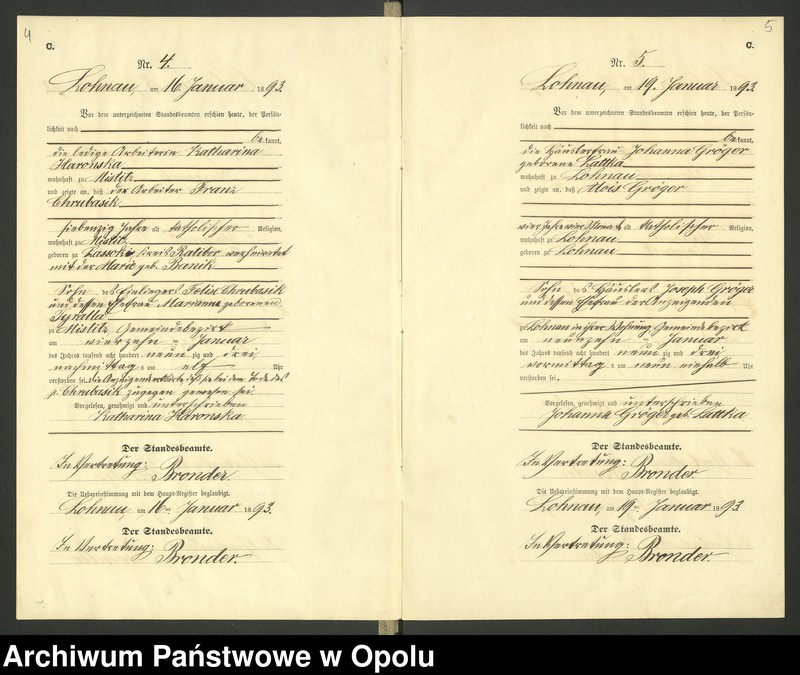 4
C.
Nr. 4.
Lohnau, am 16. Januar 1893.
Vor dem unterzeichneten Standesbeamten erschien heute, der Persön-
lichkeit nach
bekannt,
die ledige Arbeiterin Katharina
Haronska
wohnhaft zu Mistitz
und zeigte an, daß der Arbeiter Franz
Chrubasik
siebenzig Jahre alt katholischer Religion,
wohnhaft zu Mistitz
geboren zu Kreis Ratibor verheirathet
mit der Marie geb. Banik
Sohn des Einliegers Felix Chrubasik
und dessen Ehefrau Marianna geborenen
zu Mistitz, Gemeindebezirk
am vierzehn ten Januar
des Jahres tausend acht hundert neun zig und drei
nachmittag s um elf Uhr
verstorben sei, die Anzeigende erklärte, daß sie bei dem Tode des
p. Chrubasik zugegen gewesen sei
Vorgelesen, genehmigt und unterschrieben
Katharina Haronska
Der Standesbeamte.
In Vertretung:
Bronder.
Die Uebereinstimmung mit dem Haupt-Register beglaubigt.
Lohnau, am 16ten Januar 1893.
Der Standesbeamte.
In Vertretung:
Bronder.
5
C.
Nr. 5.
Lohnau, am 19. Januar 1893.
Vor dem unterzeichneten Standesbeamten erschien heute, der Persön-
lichkeit nach
bekannt,
die Häuslerfrau Johanna Gröger
geborene Lattka
wohnhaft zu Lohnau
und zeigte an, daß Alois Gröger
vier Jahre vier Monate alt katholischer Religion,
wohnhaft zu Lohnau
geboren zu Lohnau
Sohn des Häuslers Joseph Gröger
und dessen Ehefrau der Anzeigenden
zu Lohnau in ihrer Wohnung Gemeindebezirk
am neunzehn ten Januar
des Jahres tausend acht hundert neun zig und drei
vormittag s um neun einhalb Uhr
verstorben sei
Vorgelesen, genehmigt und unterschrieben
Johanna Gröger geb. Lattka
Der Standesbeamte.
In Vertretung:
Bronder.
Die Uebereinstimmung mit dem Haupt-Register beglaubigt.
Lohnau, am 19ten Januar 1893
Der Standesbeamte.
In Vertretung:
Bronder.
Archiwum Państwowe w Opolu